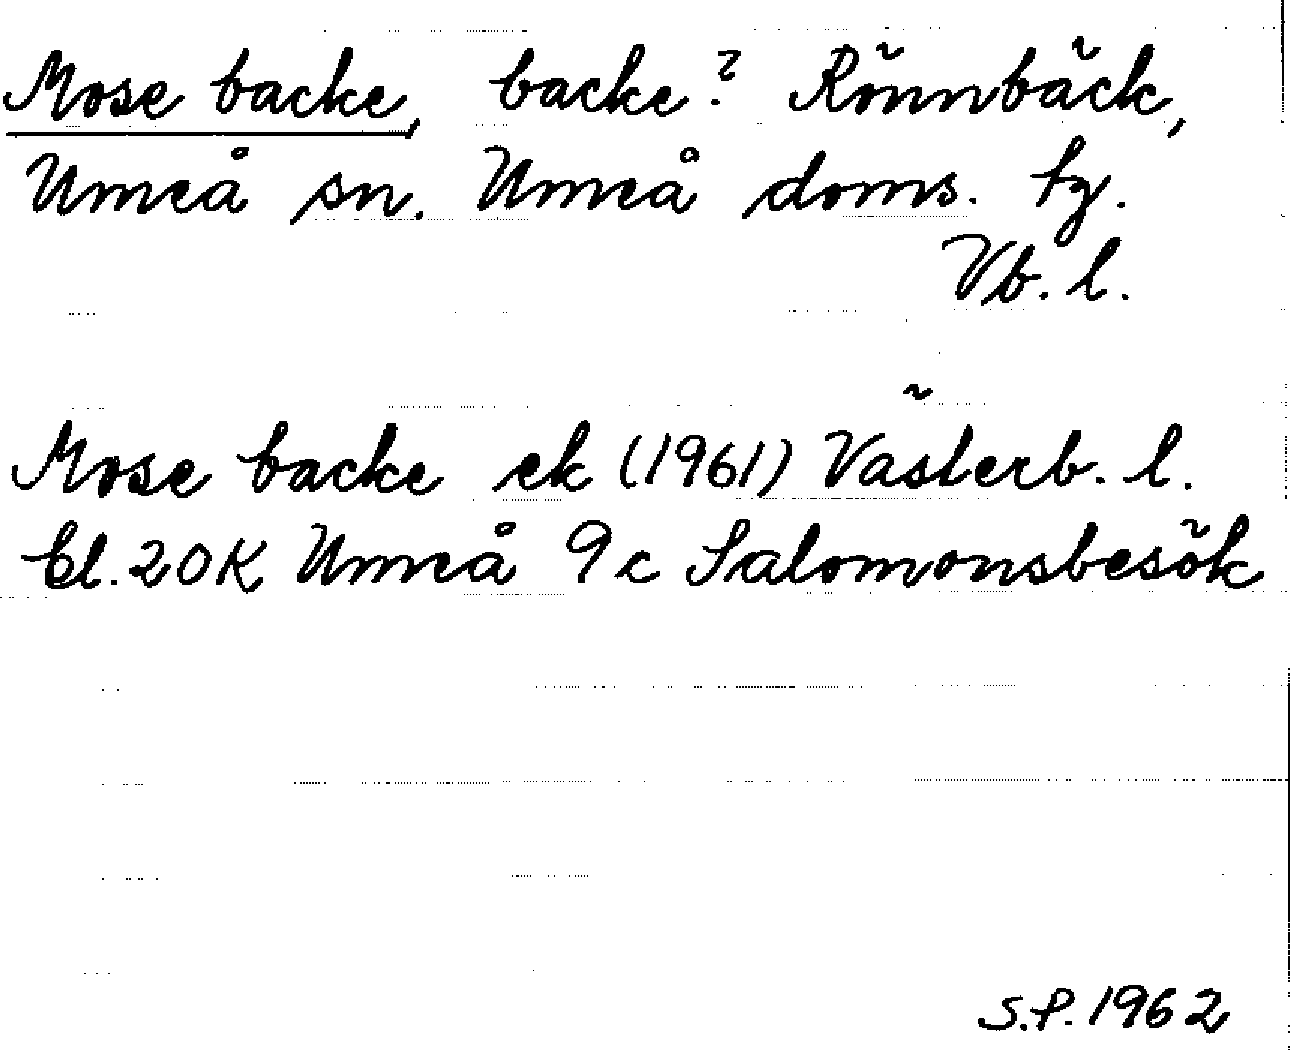 Mose backe, backe? Rönnbäck,
Umeå sn. Umeå doms. tg.
Vb. l.
Mose backe ek (1961) Västerb. l.
bl. 20K Umeå 9c Salomonsbesök
S.P. 1962